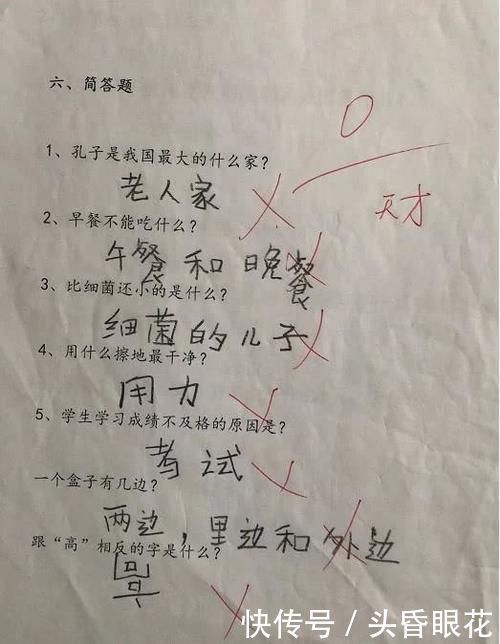 六、简答题
0
1、孔子是我国最大的什么家?
老人家
天才
2、早餐不能吃什么?
午餐和晚餐
3、比细菌还小的是什么?
细菌的儿子
4、用什么擦地最干净?
用力
5、学生学习成绩不及格的原因是?
考试
一个盒子有几边?
两边,里边和外边
跟“高”相反的字是什么?
快传号/头昏眼花